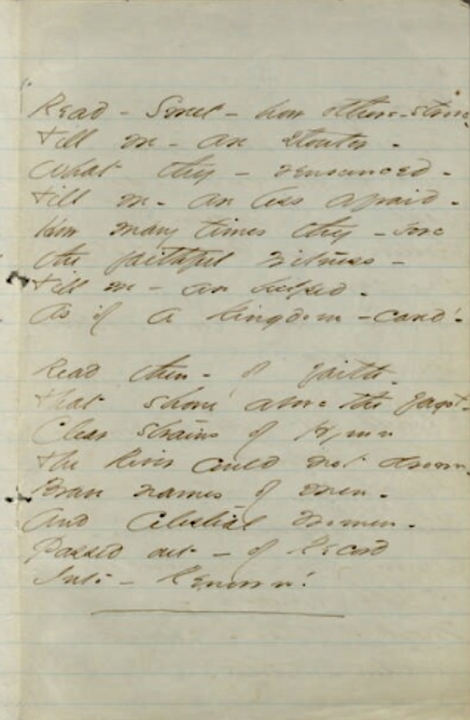 Read - Sweet - how others - strove
Till we - are stouter -
What they - renounced -
Till we - are less afraid -
How many times they - bore
the faithful witness -
Till we - are helped -
As if a Kingdom - cared!
Read then - of faith
That shone above the fagot
Clear strains of Hymn
The River could not drown
Brave names of Men -
And Celestial Women -
Passed out - of Record
Into - Renown!